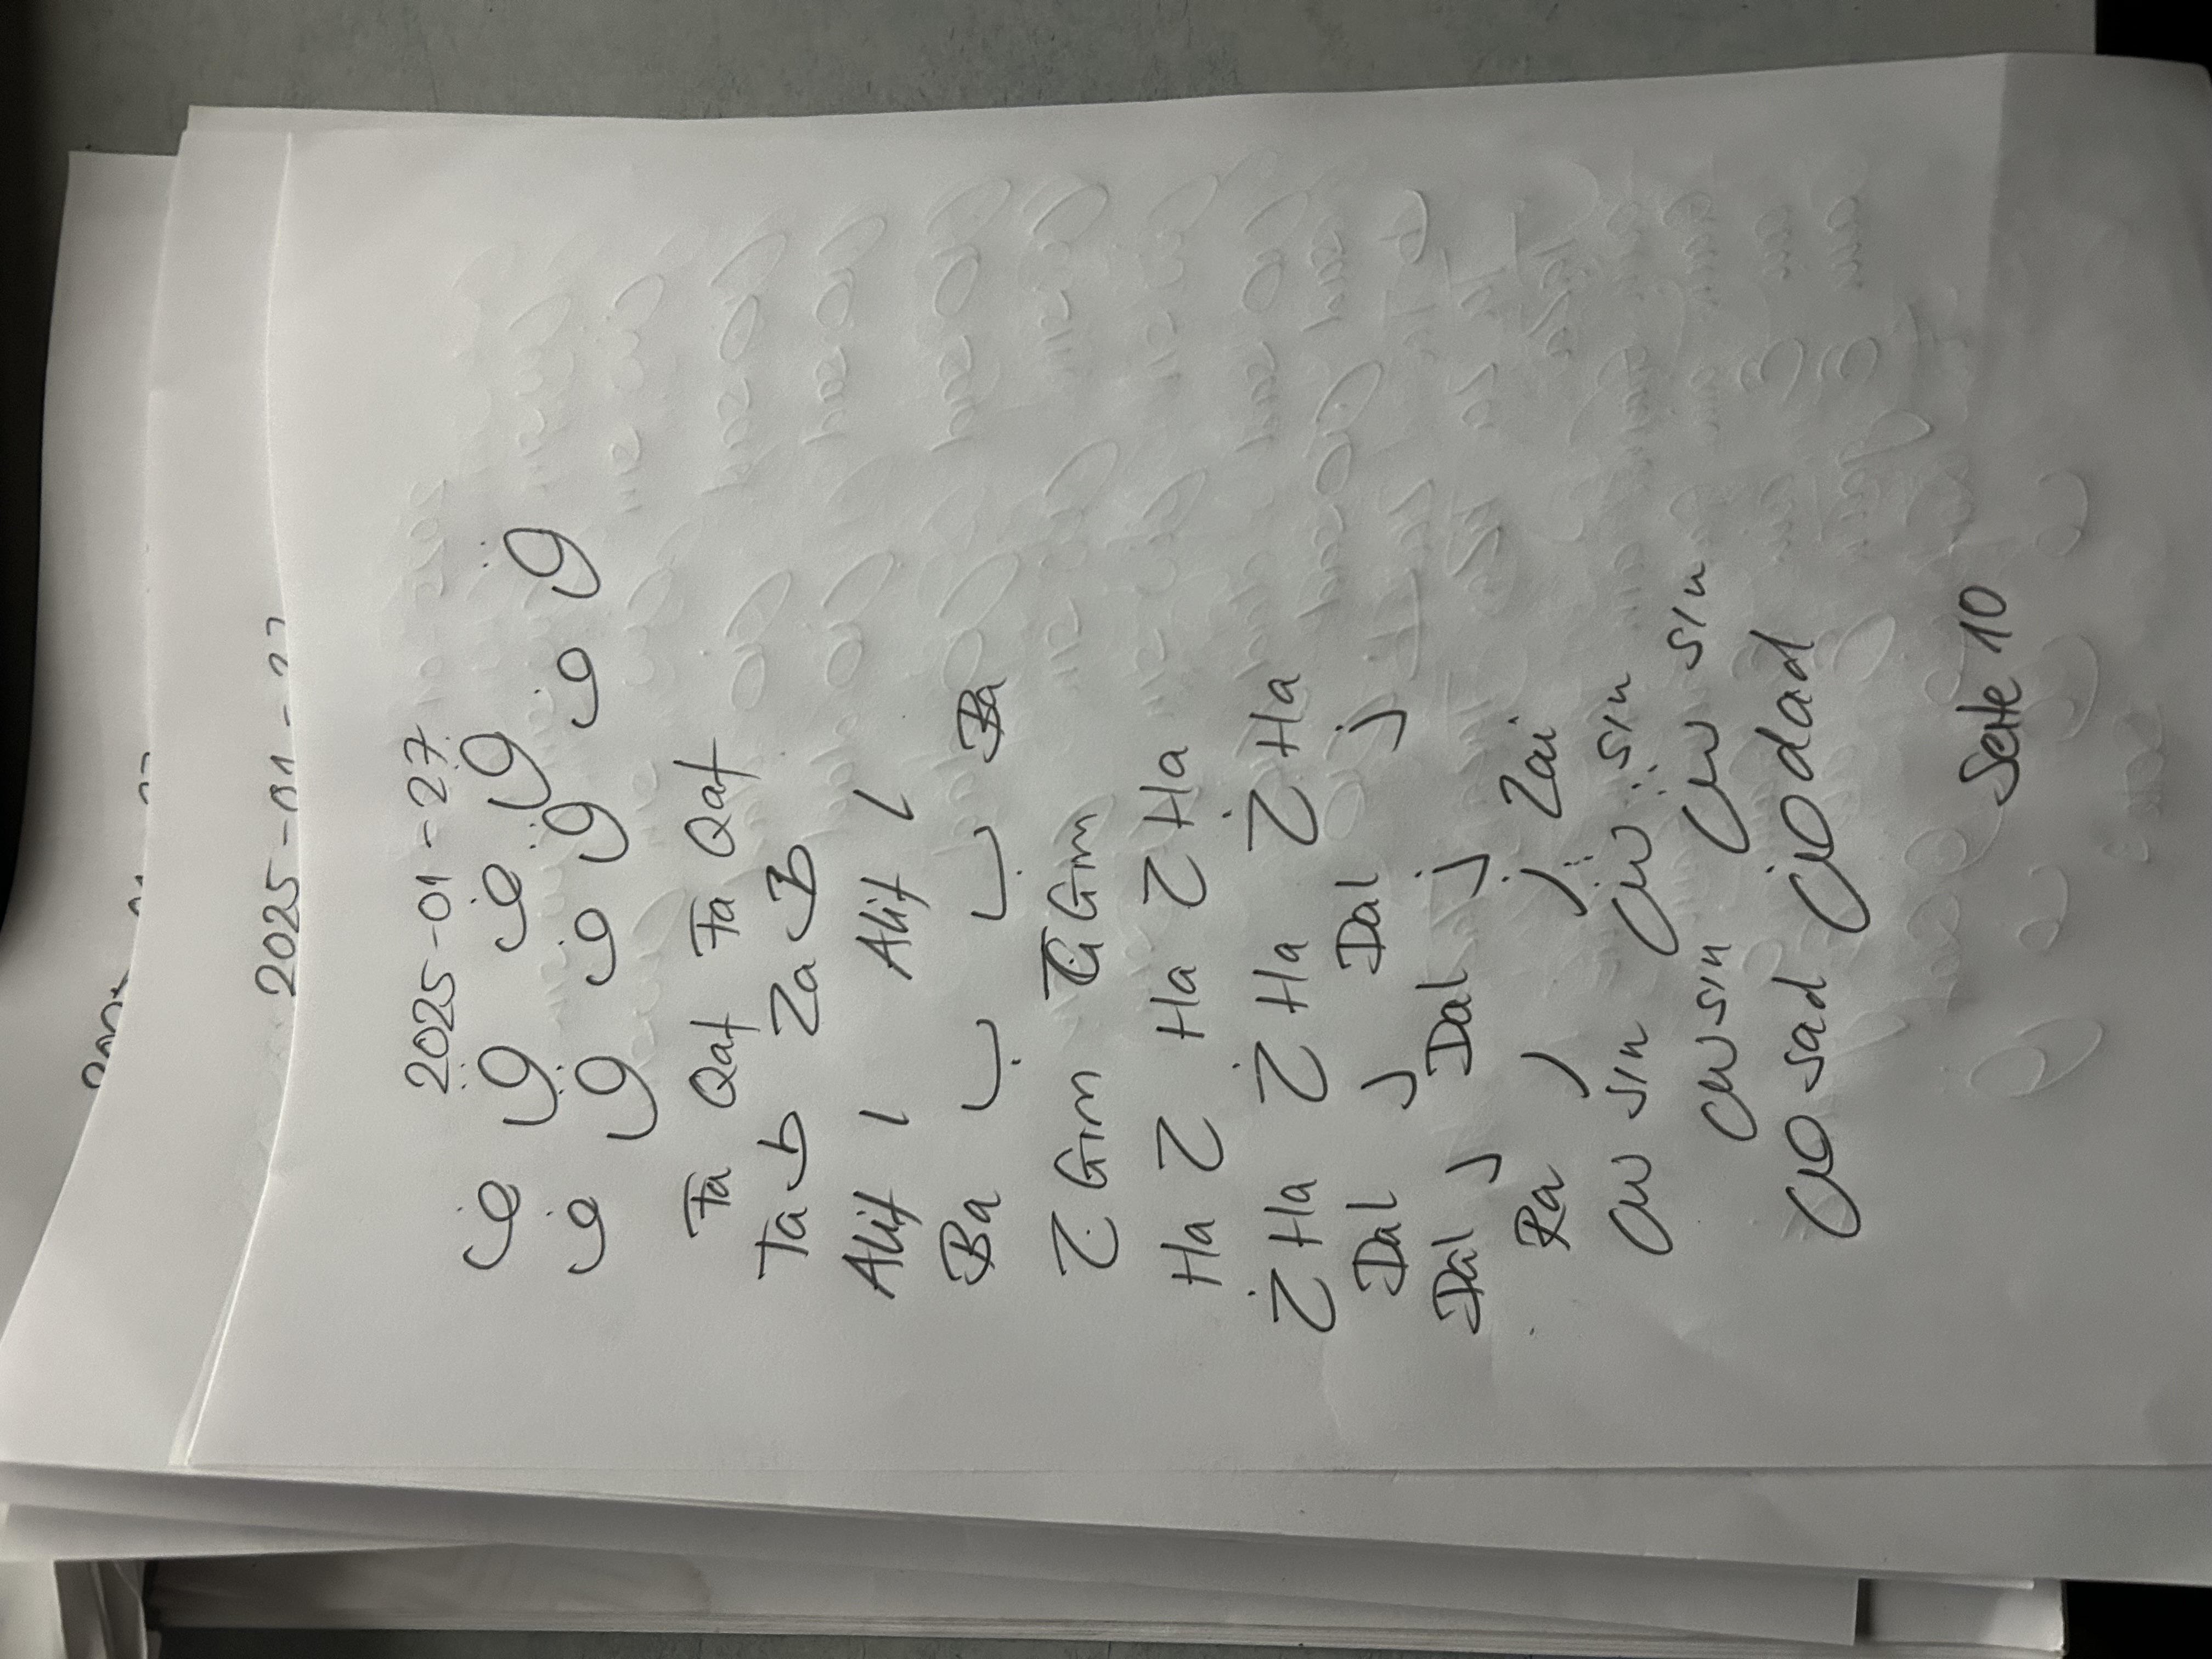 2025-01-27
ف ق ف ق
ف ق ف ق ف ق
Fa Qaf Fa Qaf
Ta ط Za ظ
Alif ا Alif ا
Ba ب ب Ba
ج Gim ج Gim
Ha ح Ha ح Ha
خ Ha خ Ha خ Ha
Dal د Dal ذ
Dal د Dal ذ
Ra ر ز Zai
س sin ش sin
س sin س sin
ص sad ض dad
Seite 10